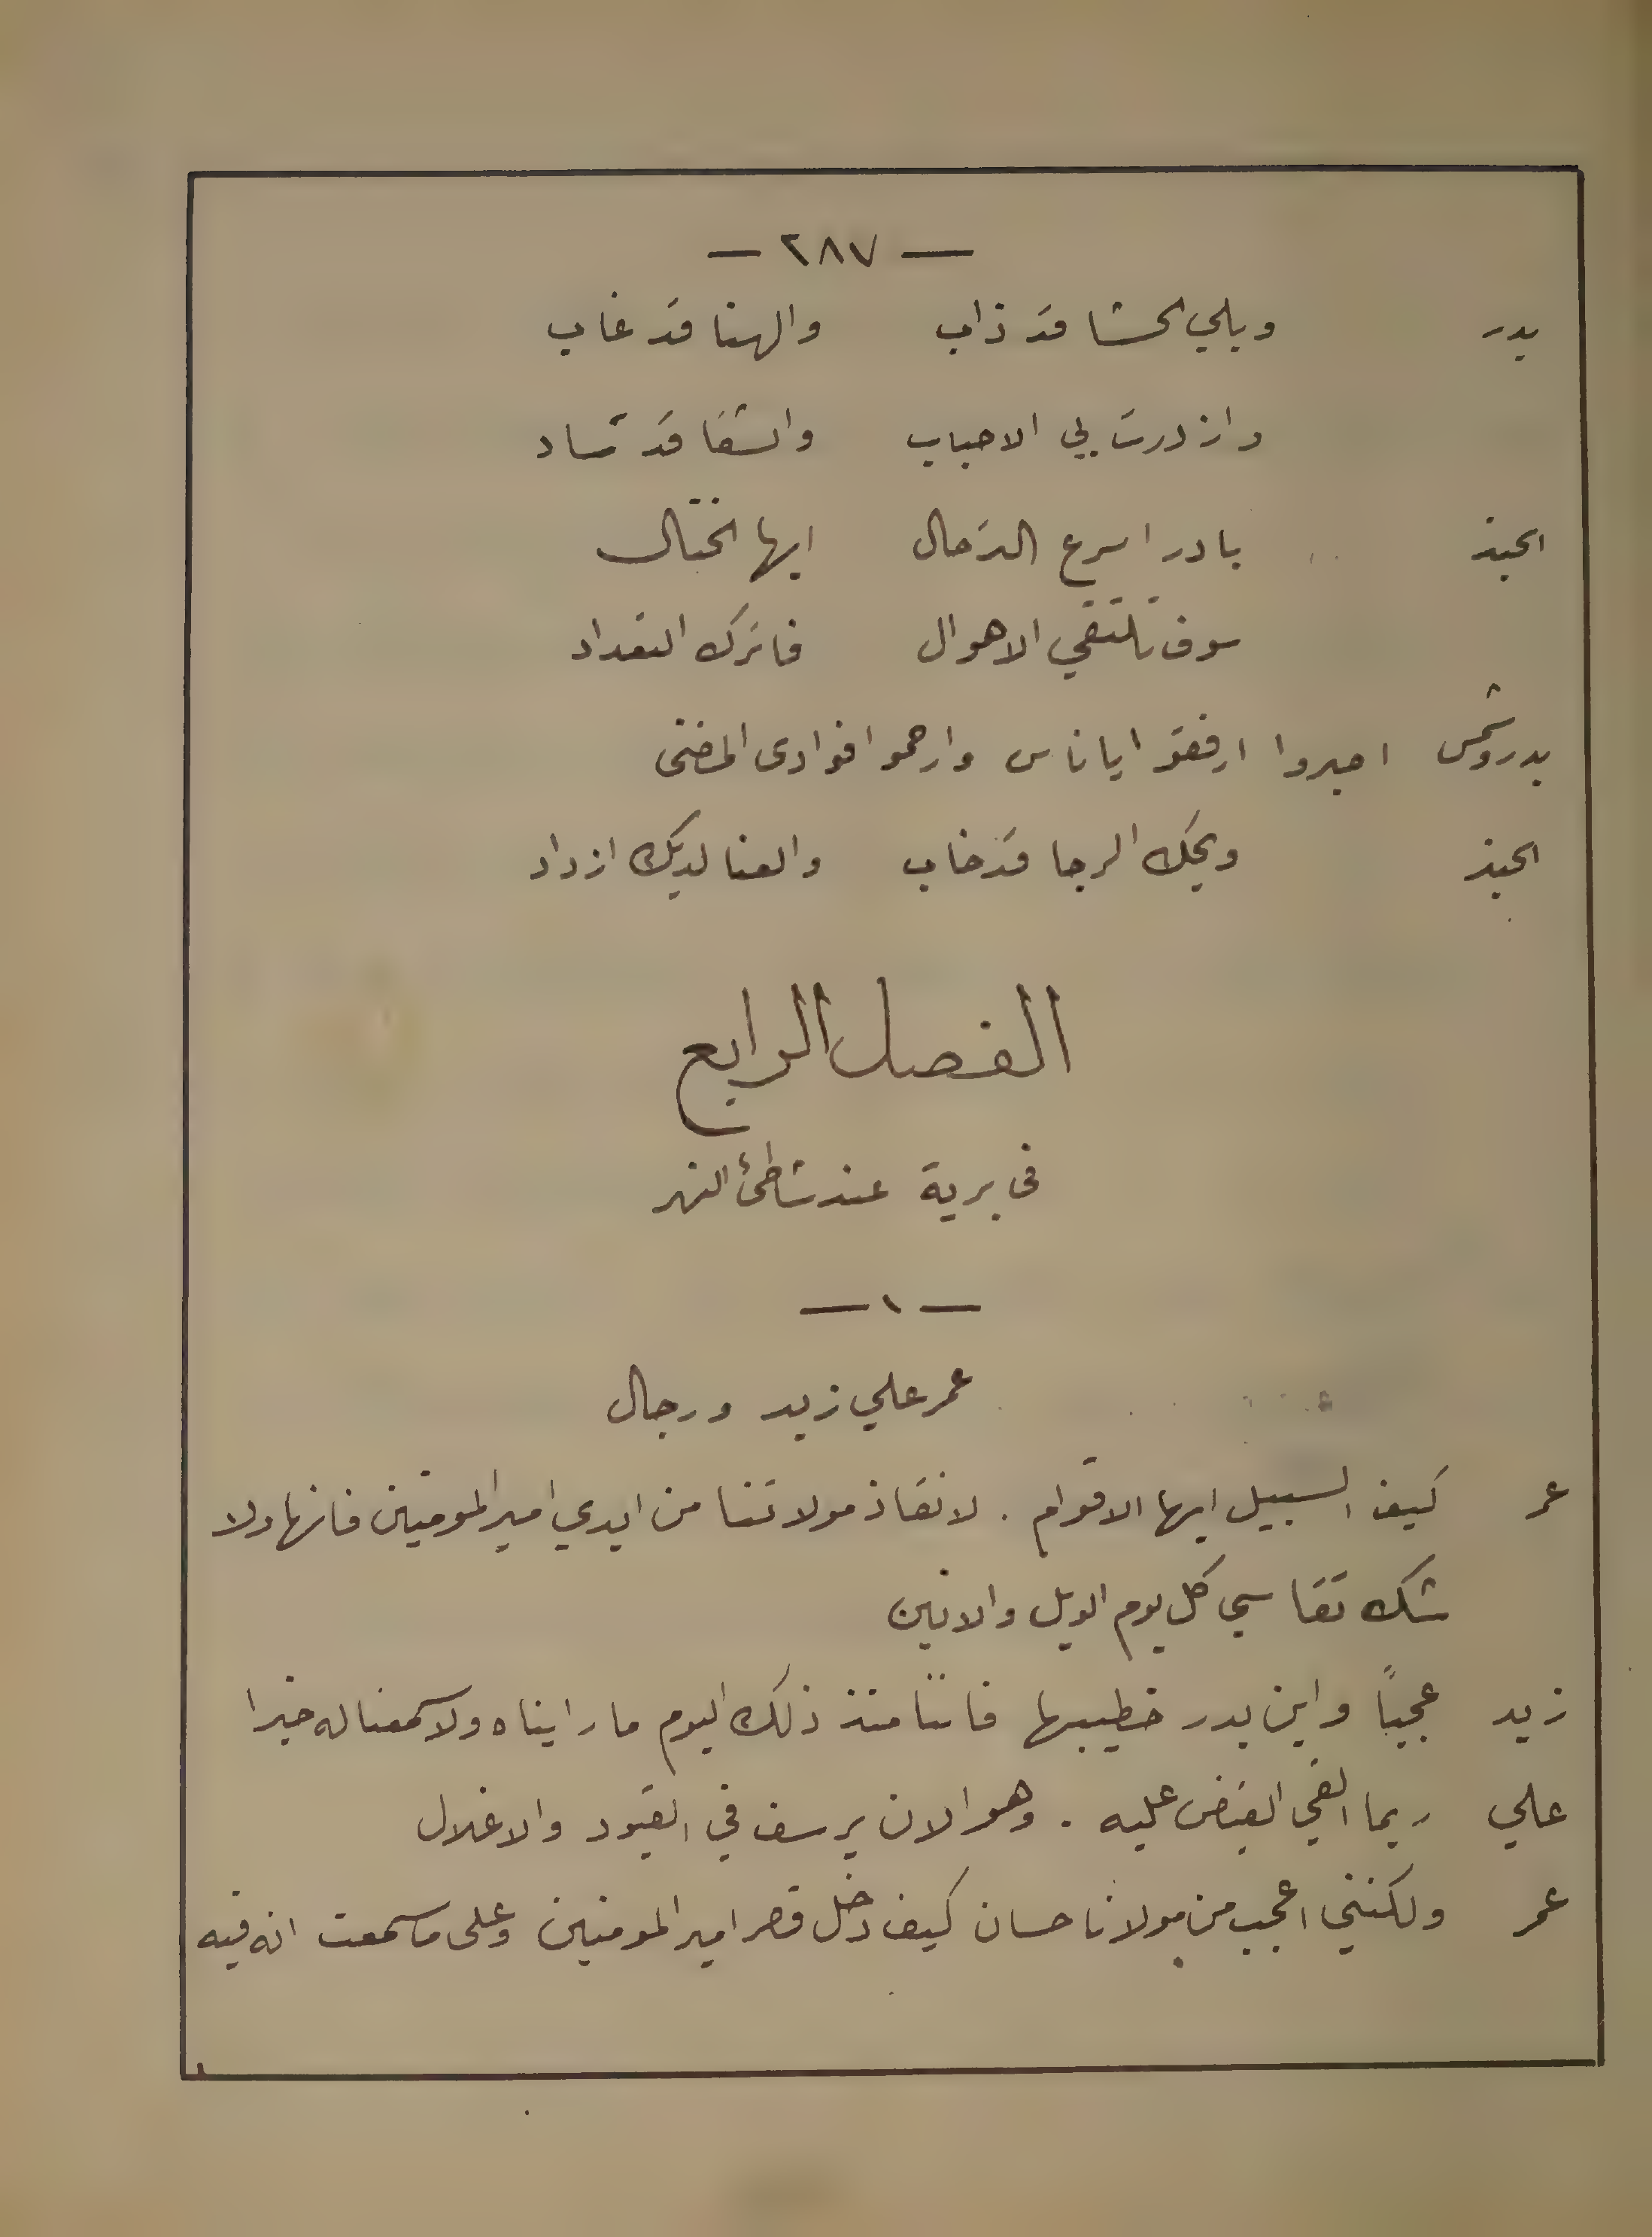 — ٢٨٧ —
بدر ويلي الحشا قد ذاب والهنا قد غاب
وازدرت بي الاحباب والشقا قد ساد
الجند بادر اسرع الترحال ايها المحتال
سوف تلتقي الاهوال فاترك التعداد
بدر وشمس اجيروا ارفقوا يا ناس وارحموا فوادى المضنى
الجند ويحك الرجا قد خاب والعنا لديك ازداد
الفصل الرابع
فى برية عند شاطئ النهر
— ١ —
عمر علي زيد ورجال
عمر كيف السبيل ايها الاقوام . لانقاذ مولاتنا من ايدي امير المومنين فانها ولا
شك تقاسي كل يوم الويل والانين
زيد عجباً واين بدر خطيبها فاننا منذ ذلك اليوم ما رايناه ولا سمعنا له خبرا
علي ربما القي القبض عليه . وهو الان يرسف في القيود والاغلال
عمر ولكنني اعجب من مولانا حسان كيف دخل قصر امير المومنين وعلى ما سمعت انه فيه